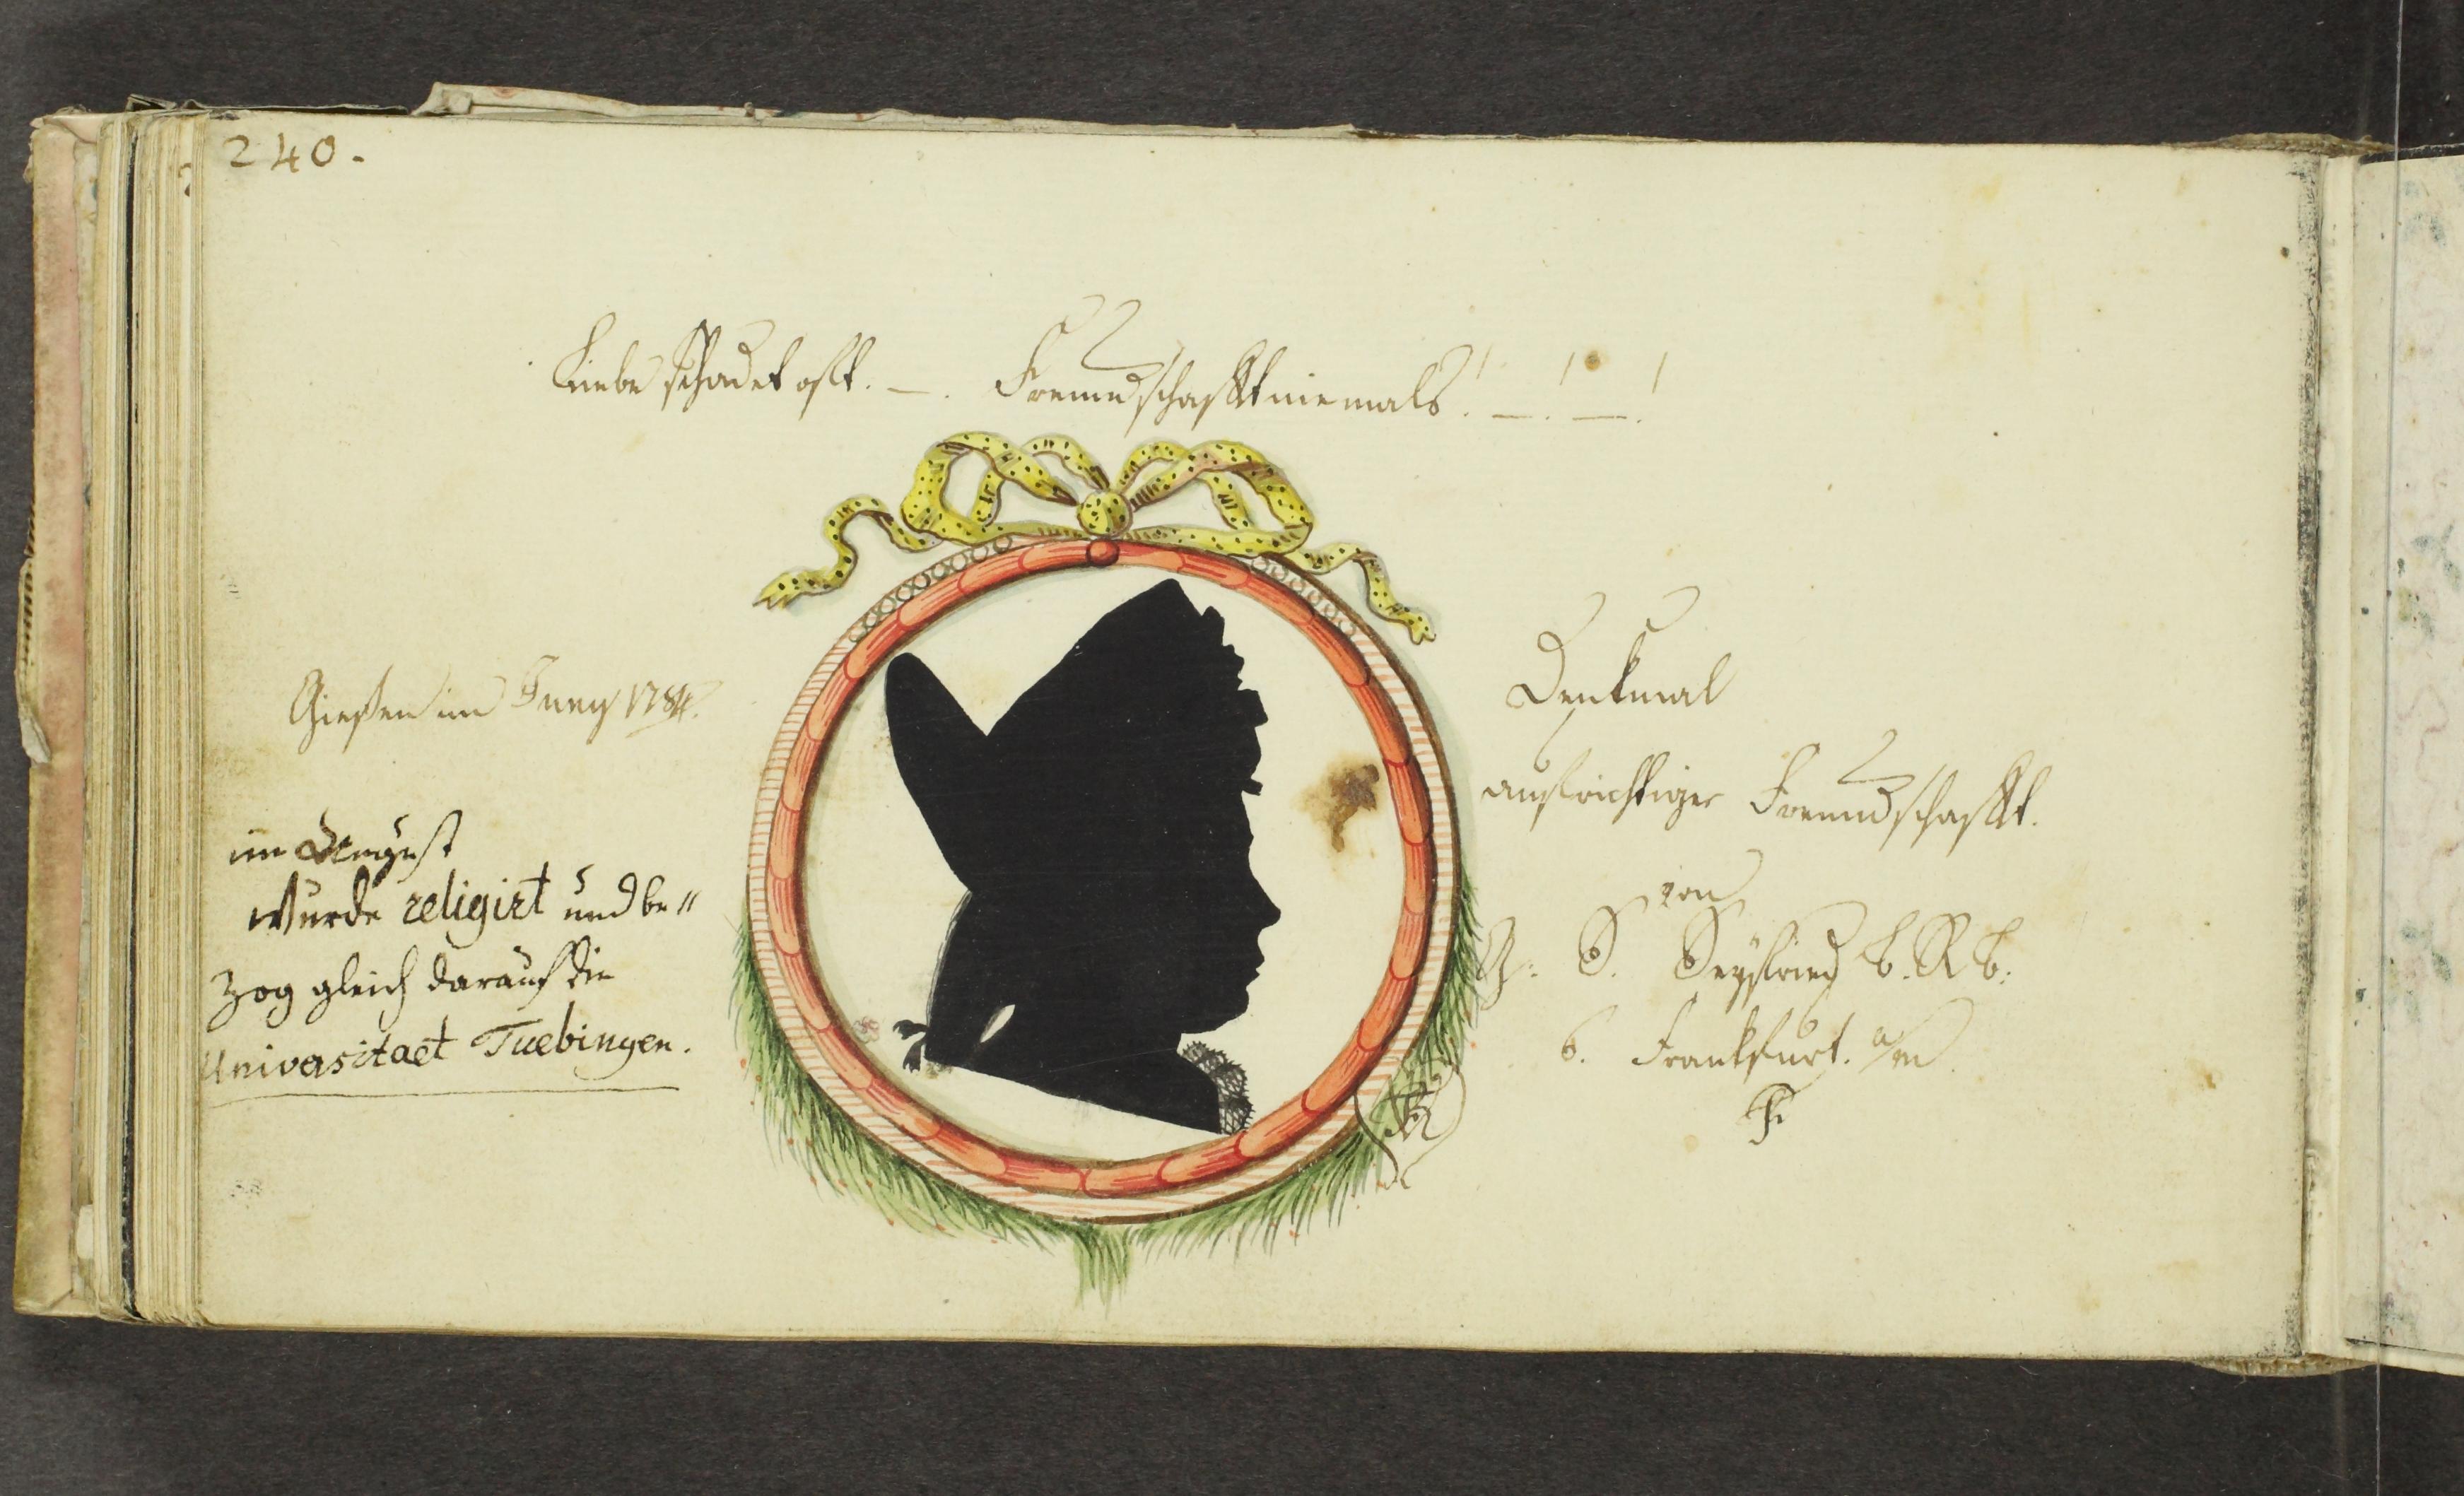 240.
Liebe schadet oft. —. Freundschafft niemals! —! —!
Gießen im Juny 1784.
im August
wurde religirt und be„
zog gleich darauf die
Universitaet Tuebingen.
Denkmal
aufrichtiger Freundschafft.
von
S. Seyfried
b. Frankfurt. a/m.